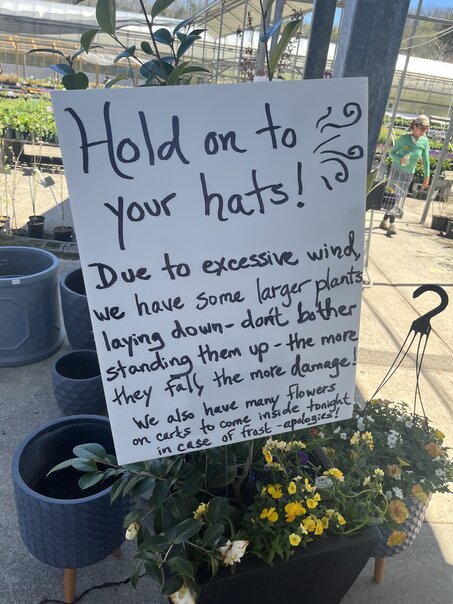 Hold on to
your hats!
Due to excessive wind,
we have some larger plants
laying down - don't bother
standing them up - the more
they fall, the more damage!
We also have many flowers
on carts to come inside tonight
in case of frost - apologies!